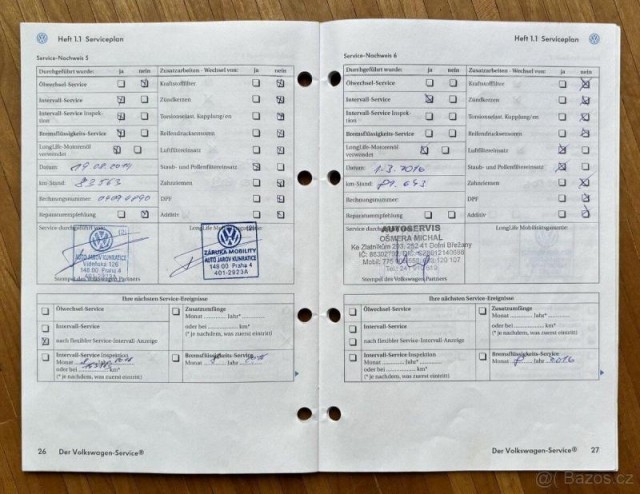 Heft 1.1 Serviceplan
Service-Nachweis 5
Durchgeführt wurde: ja nein Zusatzarbeiten - Wechsel von: ja nein
Ölwechsel-Service Kraftstofffilter
Intervall-Service Zündkerzen
Intervall-Service Inspektion
Bremsflüssigkeits-Service Reifendrucksensoren
LongLife-Motorenöl verwendet Luftfiltereinsatz
Datum: Staub- und Pollenfiltereinsatz
km-Stand: 83563 Zahnriemen
Rechnungsnummer: DPF
Reparaturempfehlung Additiv
Service durch
AUTO JAROV KUNRATICE
Vídeňská 126
148 00 Praha 4
401-2823A
ZÁRUKA MOBILITY
AUTO JAROV KUNRATICE
148 00 Praha 4
401-2823A
Stempel des Volkswagen Partners
Ihre nächsten Service-Ereignisse
Ölwechsel-Service
Intervall-Service
nach flexibler Service-Intervall-Anzeige
Zusatzumfänge
Monat Jahr*
oder bei km*
(* je nachdem, was zuerst eintritt)
Intervall-Service Inspektion
Monat Jahr*
oder bei km*
(* je nachdem, was zuerst eintritt)
Bremsflüssigkeits-Service
Monat Jahr
26 Der Volkswagen-Service®
Heft 1.1 Serviceplan
Service-Nachweis 6
Durchgeführt wurde: ja nein Zusatzarbeiten - Wechsel von: ja nein
Ölwechsel-Service Kraftstofffilter
Intervall-Service Zündkerzen
Intervall-Service Inspektion
Bremsflüssigkeits-Service Reifendrucksensoren
LongLife-Motorenöl verwendet Luftfiltereinsatz
Datum: 1.3.2016 Staub- und Pollenfiltereinsatz
km-Stand: Zahnriemen
Rechnungsnummer: DPF
Reparaturempfehlung Additiv
Service durch
AUTOSERVIS
OŠMERA MICHAL
Ke Zlatníkům 293, 252 41 Dolní Břežany
Stempel des Volkswagen Partners
Ihre nächsten Service-Ereignisse
Ölwechsel-Service
Intervall-Service
nach flexibler Service-Intervall-Anzeige
Zusatzumfänge
Monat Jahr*
oder bei km*
(* je nachdem, was zuerst eintritt)
Intervall-Service Inspektion
Monat Jahr*
oder bei km*
(* je nachdem, was zuerst eintritt)
Bremsflüssigkeits-Service
Monat Jahr 2016
Der Volkswagen-Service® 27
Bazos.cz